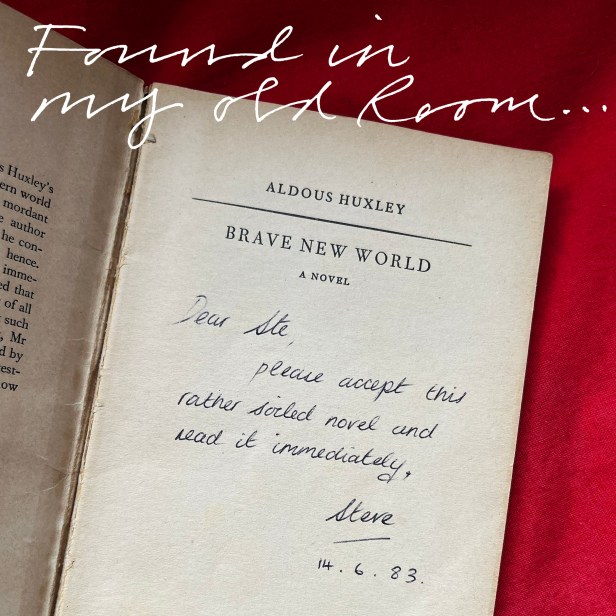 Found in
my old Room...
s Huxley's
ern world
mordant
e author
he con-
hence.
imme-
ed that
of all
such
, Mr
d by
est-
ow
ALDOUS HUXLEY
BRAVE NEW WORLD
A NOVEL
Dear Ste,
please accept this
rather soiled novel and
read it immediately,
Steve
14.6.83.